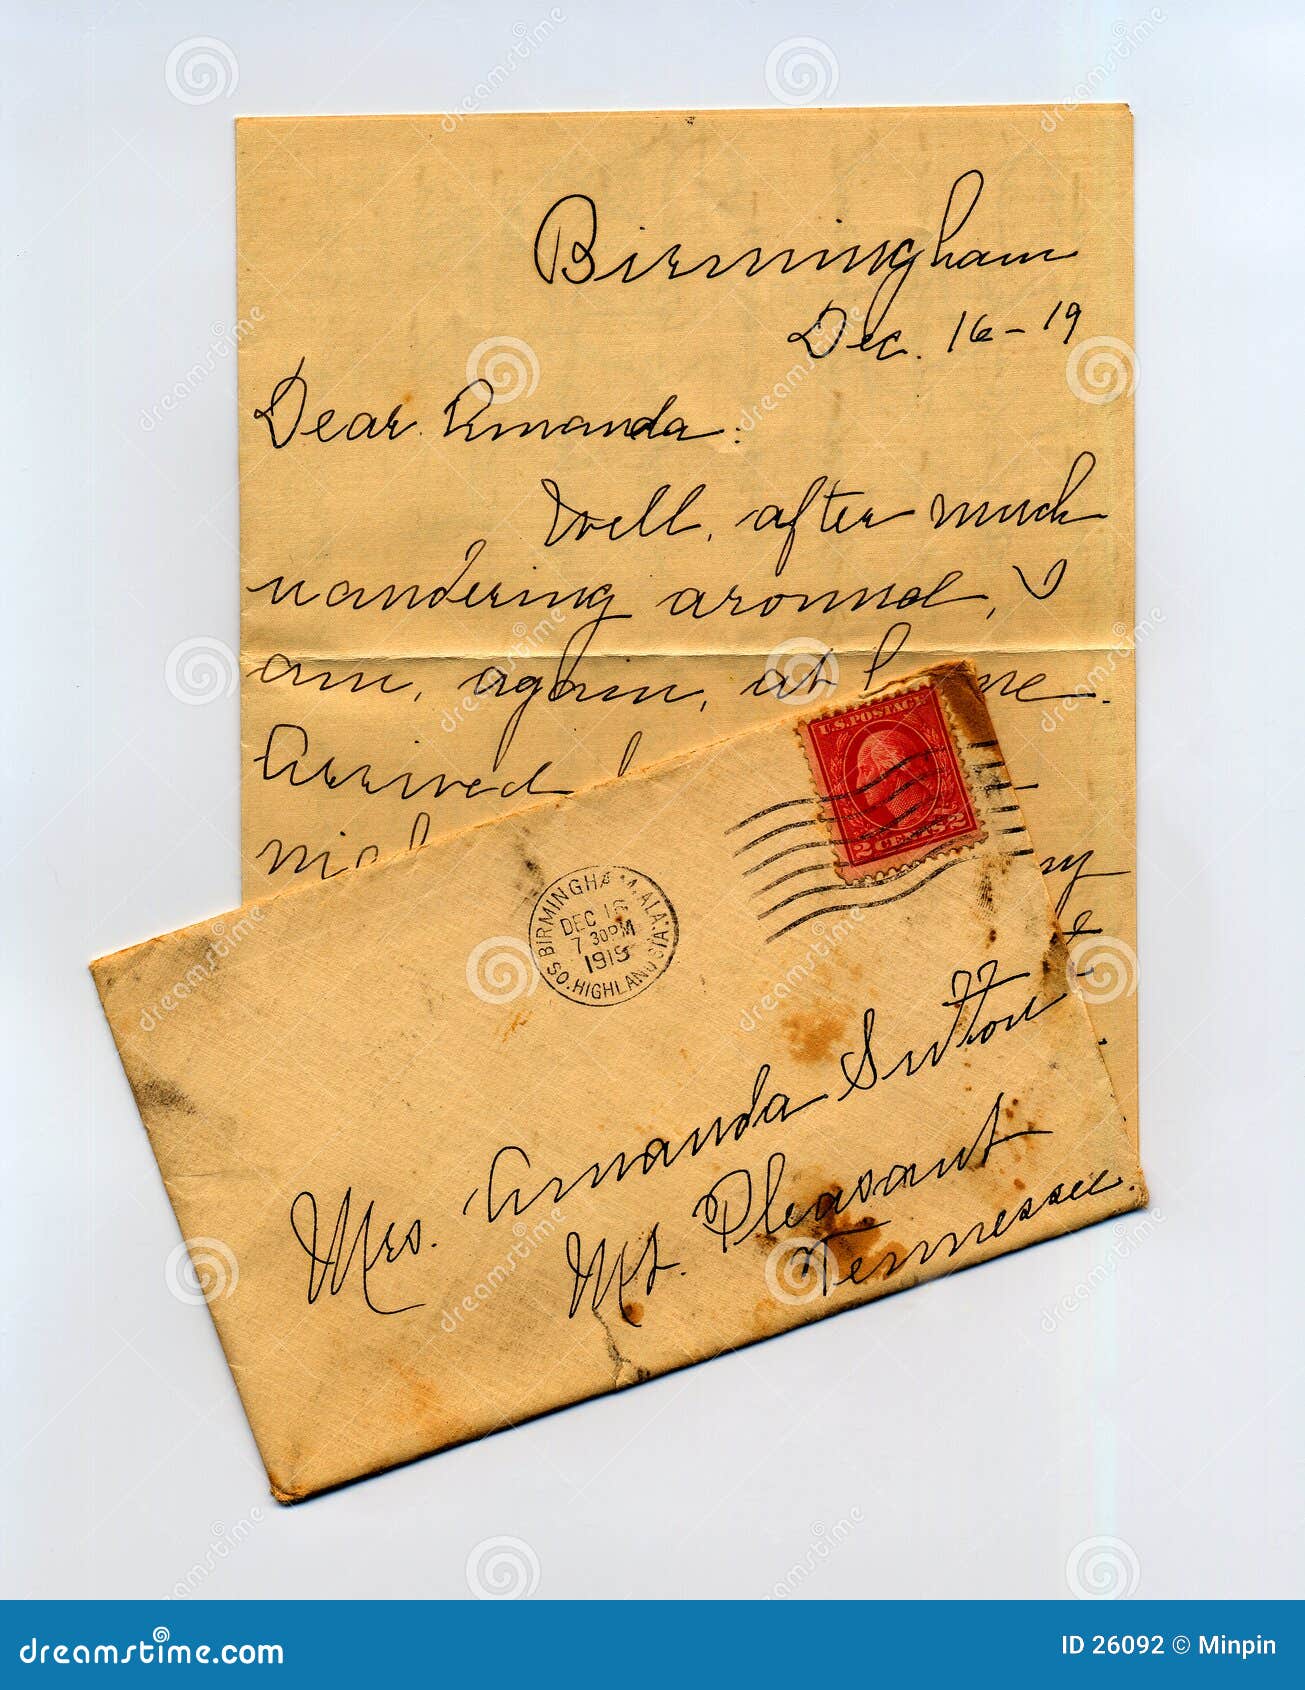 Birmingham
Dec. 16-19
Dear Amanda:
Well, after much
wandering around, I
am, again, at
Arrived
U.S. POSTAGE
2 CENTS 2
BIRMINGHAM, ALA.
DEC 16
7 30PM
1919
SO. HIGHLAND STA.
Mrs. Amanda Sutton
Mt. Pleasant
Tennessee.
dreamstime.com
ID 26092 © Minpin